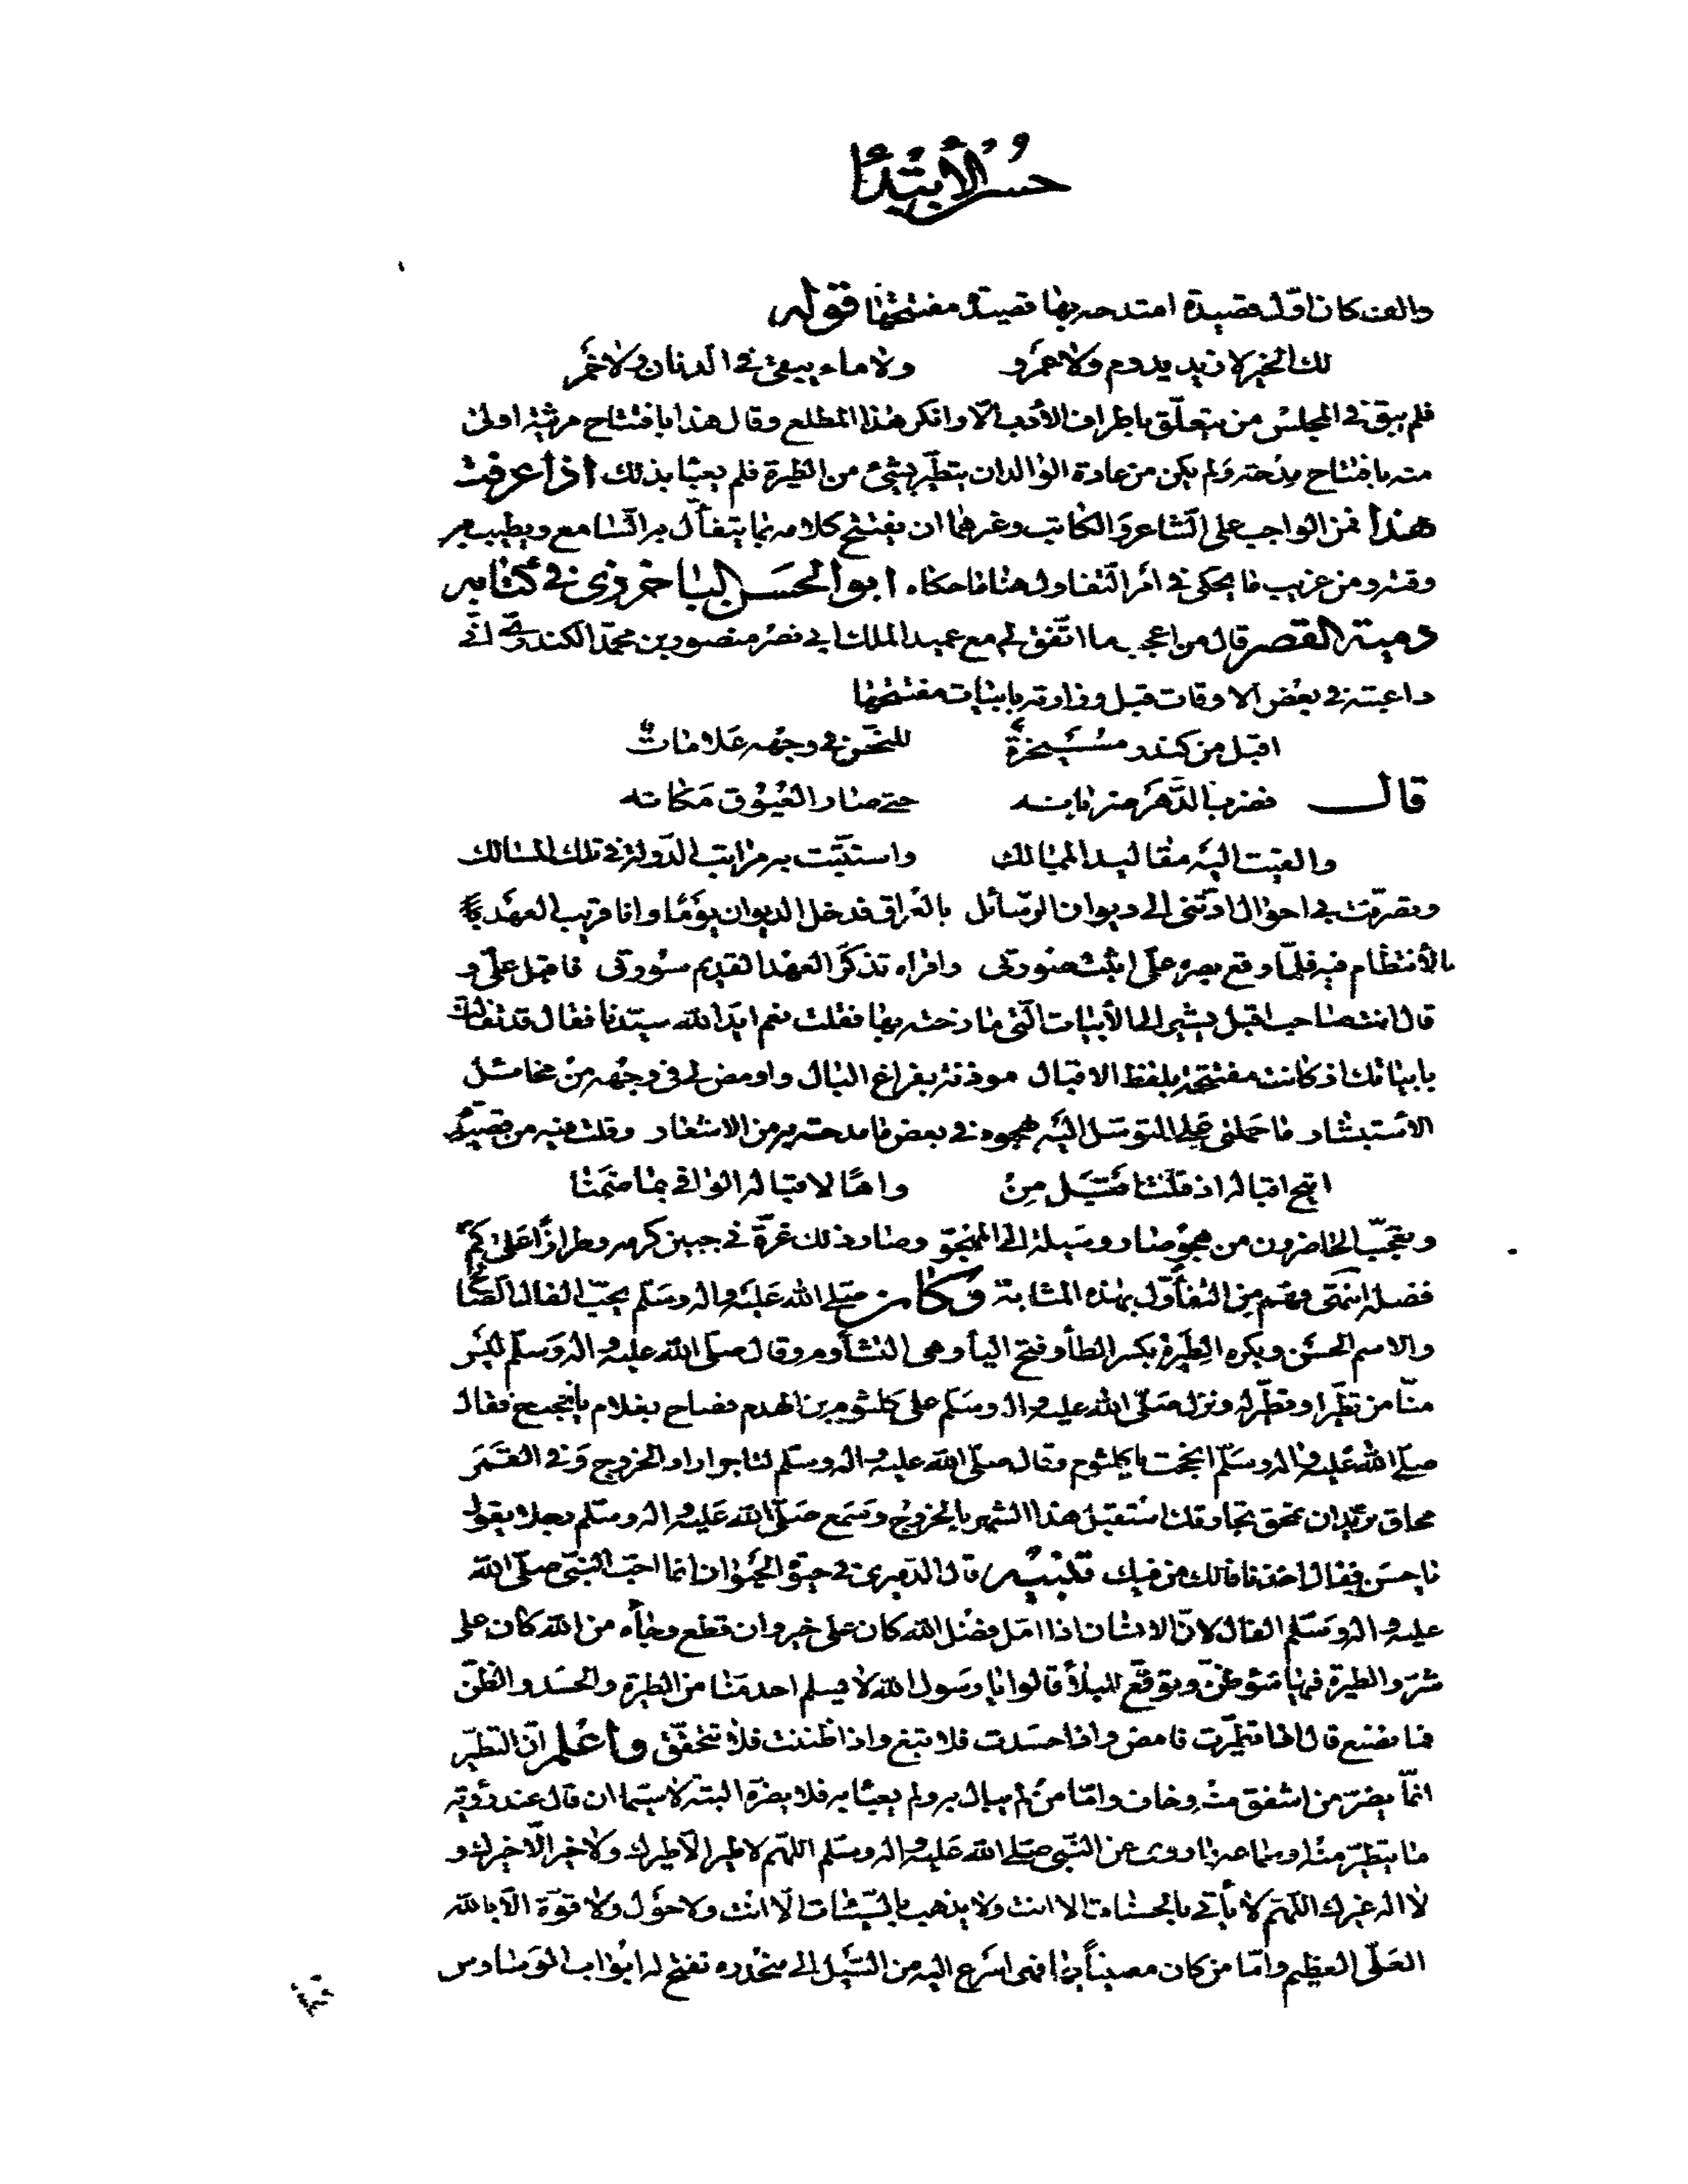 حسن الأبتدأ
والف كان اول قصيدة امتدحه بها قصيدة مفتتحها قوله
لك الخير لا زيد يدوم ولا عمرو ولا ماء يبقى في الدنان ولا خمر
فلم يبق في المجلس من يتعلّق باطراف الأدب الّا وانكر هذا المطلع وقال هذا بافتتاح مرثية اولى
منه بافتتاح مدحة ولم يكن من عادة الوالد ان يتطيّر بشئ من الطيرة فلم يعبأ بذلك اذا عرفت
هذا فمن الواجب على الشاعر والكاتب وغيرهما ان يفتتح كلامه بما يتفأّل به السامع ويطيب به
وقته ومن غريب ما يحكى في امر التفاول هنا ما حكاه ابو الحسن الباخرزى في كتابه
دمية القصر قال من اعجب ما اتّفق لي مع عميد الملك ابي نصر منصور بن محمّد الكندرىّ انّي
داعبته في بعض الاوقات قبل وزارته بابيات مفتتحها
اقبل من كندر مسيخرةٌ للنحس في وجهه علاماتٌ
قال فضرب الدّهر ضربانه حتى صار العيّوق مكانه
والقيت اليه مقاليد الممالك واستتبّت به مراتب الدولة في تلك المسالك
وتصرّفت بي احوال ادّتنى الى ديوان الرسائل بالعراق فدخل الديوان يومًا وانا قريب العهد
بالأنتظام فيه فلمّا وقع بصره علىّ اثبت صورتى وافراه تذكّر العهد القديم سورتى فاقبل علىّ و
قال انت صاحب اقبل يشير الى الأبيات التى مازحته بها فقلت نعم ايد الله سيّدنا فقال قد تفالت
بابياتك اذ كانت مفتتحة بلفظ الاقبال موذنة بفراغ البال واومض لى في وجهه من مخائل
الأستبشار ما حملنى على التوسّل اليه بهجوه في بعض ما مدحته به من الاشعار وقلت فيه من قصيدة
اقبل من واهًا لاقباله الوافي بما ضمنا
وتعجّب الحاضرون من هجو صار وسيلة الى المهجوّ وصار ذلك غرّة في جبين كرمه وطرازًا على كمّ
فضله انتهى وهم من التفأّول بهذه المثابة وكان صلى الله عليه واله وسلم يحبّ الفال الصالح
والاسم الحسن ويكره الطيرة بكسر الطأ وفتح اليأ وهى التشأوم وقال صلى الله عليه واله وسلم ليس
منّا من تطيّر او تطيّر له ونزل صلّى الله عليه واله وسلم على كلثوم بن الهدم فصاح بغلام يا نجيح فقال
صلى الله عليه واله وسلم انجحت يا كلثوم وقال صلى الله عليه واله وسلم لتاجر اراد الخروج وفي القمر
محاق تريد ان تمحق تجارتك استقبل هذا الشهر بالخروج وسمع صلى الله عليه واله وسلم رجلا يقول
يا حسن فقال اخذنا فالك من فيك تنبيه قال الدميرى في حيوة الحيوان انما احبّ النبىّ صلى الله
عليه واله وسلم الفال لانّ الانسان اذا امّل فضل الله كان على خير وان قطع رجأه من الله كان على
شرّ والطيرة فيها سوء ظنّ وتوقّع للبلأ قالوا يا رسول الله لا يسلم احد منّا من الطيرة والحسد والظنّ
فما نصنع قال اذا تطيّرت فامض واذا حسدت فلا تبغ واذا ظننت فلا تتحقّق واعلم انّ التطيّر
انّما يضرّ من اشفق منه وخاف وامّا من لم يبال به ولم يعبأ به فلا يضرّه البتّة لا سيّما ان قال عند رؤية
ما يتطيّر منه او سماعه ما روى عن النّبى صلى الله عليه واله وسلم اللهم لا طير الّا طيرك ولا خير الّا خيرك و
لا اله غيرك اللهم لا يأتي بالحسنات الا انت ولا يذهب بالسّيّئات الّا انت ولا حول ولا قوّة الّا بالله
العلّى العظيم وامّا من كان معنياً بها فهى اسرع اليه من السّيل الى منحدره تفتح له ابواب الوساوس